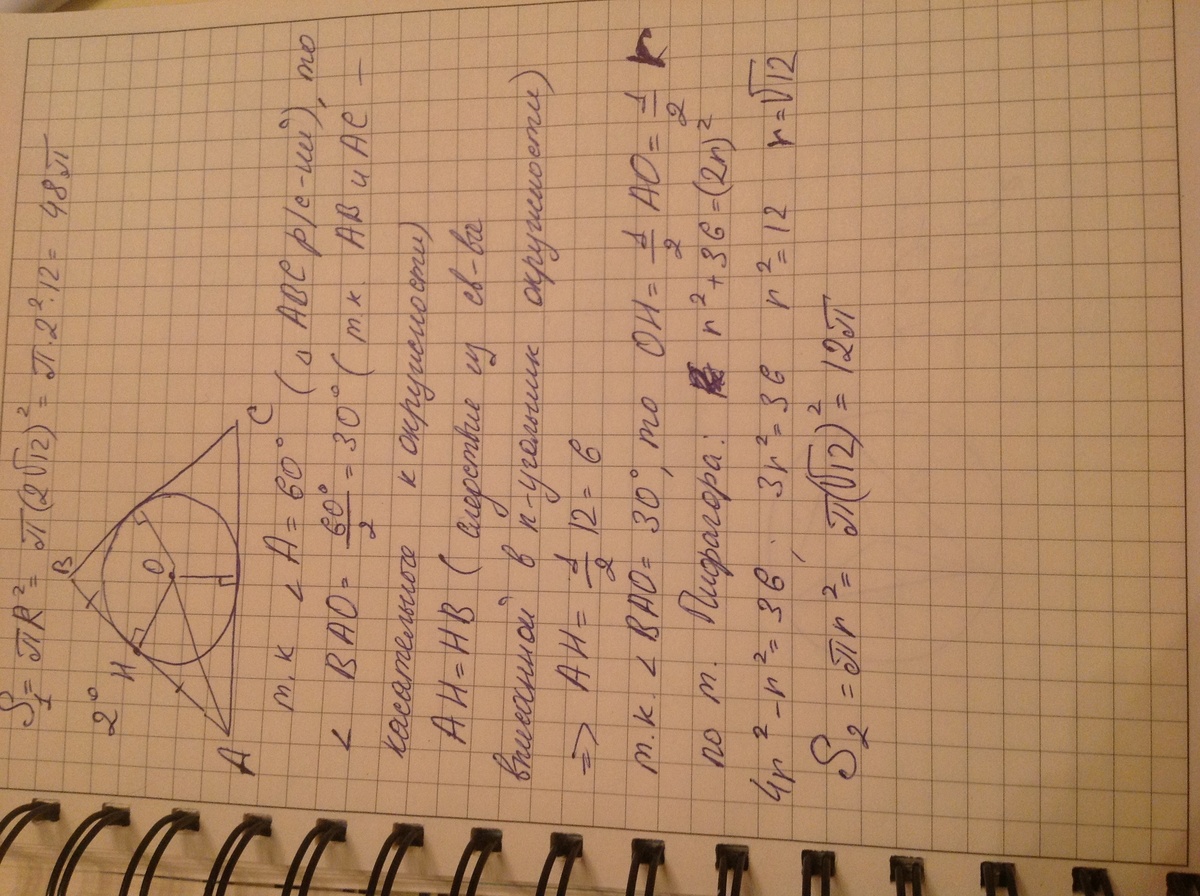 S₁ = πR² = π(2√12)² = π·2²·12 = 48π
2°
B
H
O
A
C
т.к ∠A = 60° (△ ABC р/с-ий), то
∠ BAO = 60°/2 = 30° (т.к. AB и AC –
касательные к окружности)
AH = HB (следствие из св-ва
вписанной в n-угольник окружности)
=> AH = 1/2 12 = 6
т.к. ∠ BAO = 30°, то OH = 1/2 AO = 1/2 r
по т. Пифагора: r² + 36 = (2r)²
4r² – r² = 36; 3r² = 36 r² = 12 r = √12
S₂ = πr² = π(√12)² = 12π